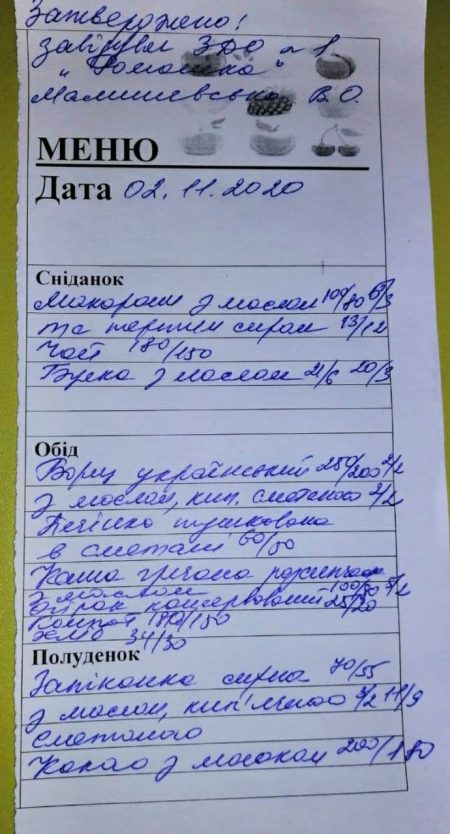 Затверджено!
завідувач ЗДО №1
"Ромашка"
Малишевська В.О.
МЕНЮ
Дата 02.11.2020
Сніданок
Макарони з маслом 100/80
та тертим сиром 13/12
Чай 180/150
Булка з маслом 21/6 20/3
Обід
Борщ український 250/200
з маслом, кип. сметаною 2/2
Печінка тушкована
в сметані 60/50
Каша гречана розсипчаста
з маслом 100/80
огірок консервований 25/20
Компот 180/150
хліб 34/30
Полуденок
Запіканка сирна 70/55
з маслом, кип'яченою 3/2 11/9
сметаною
Какао з молоком 200/180